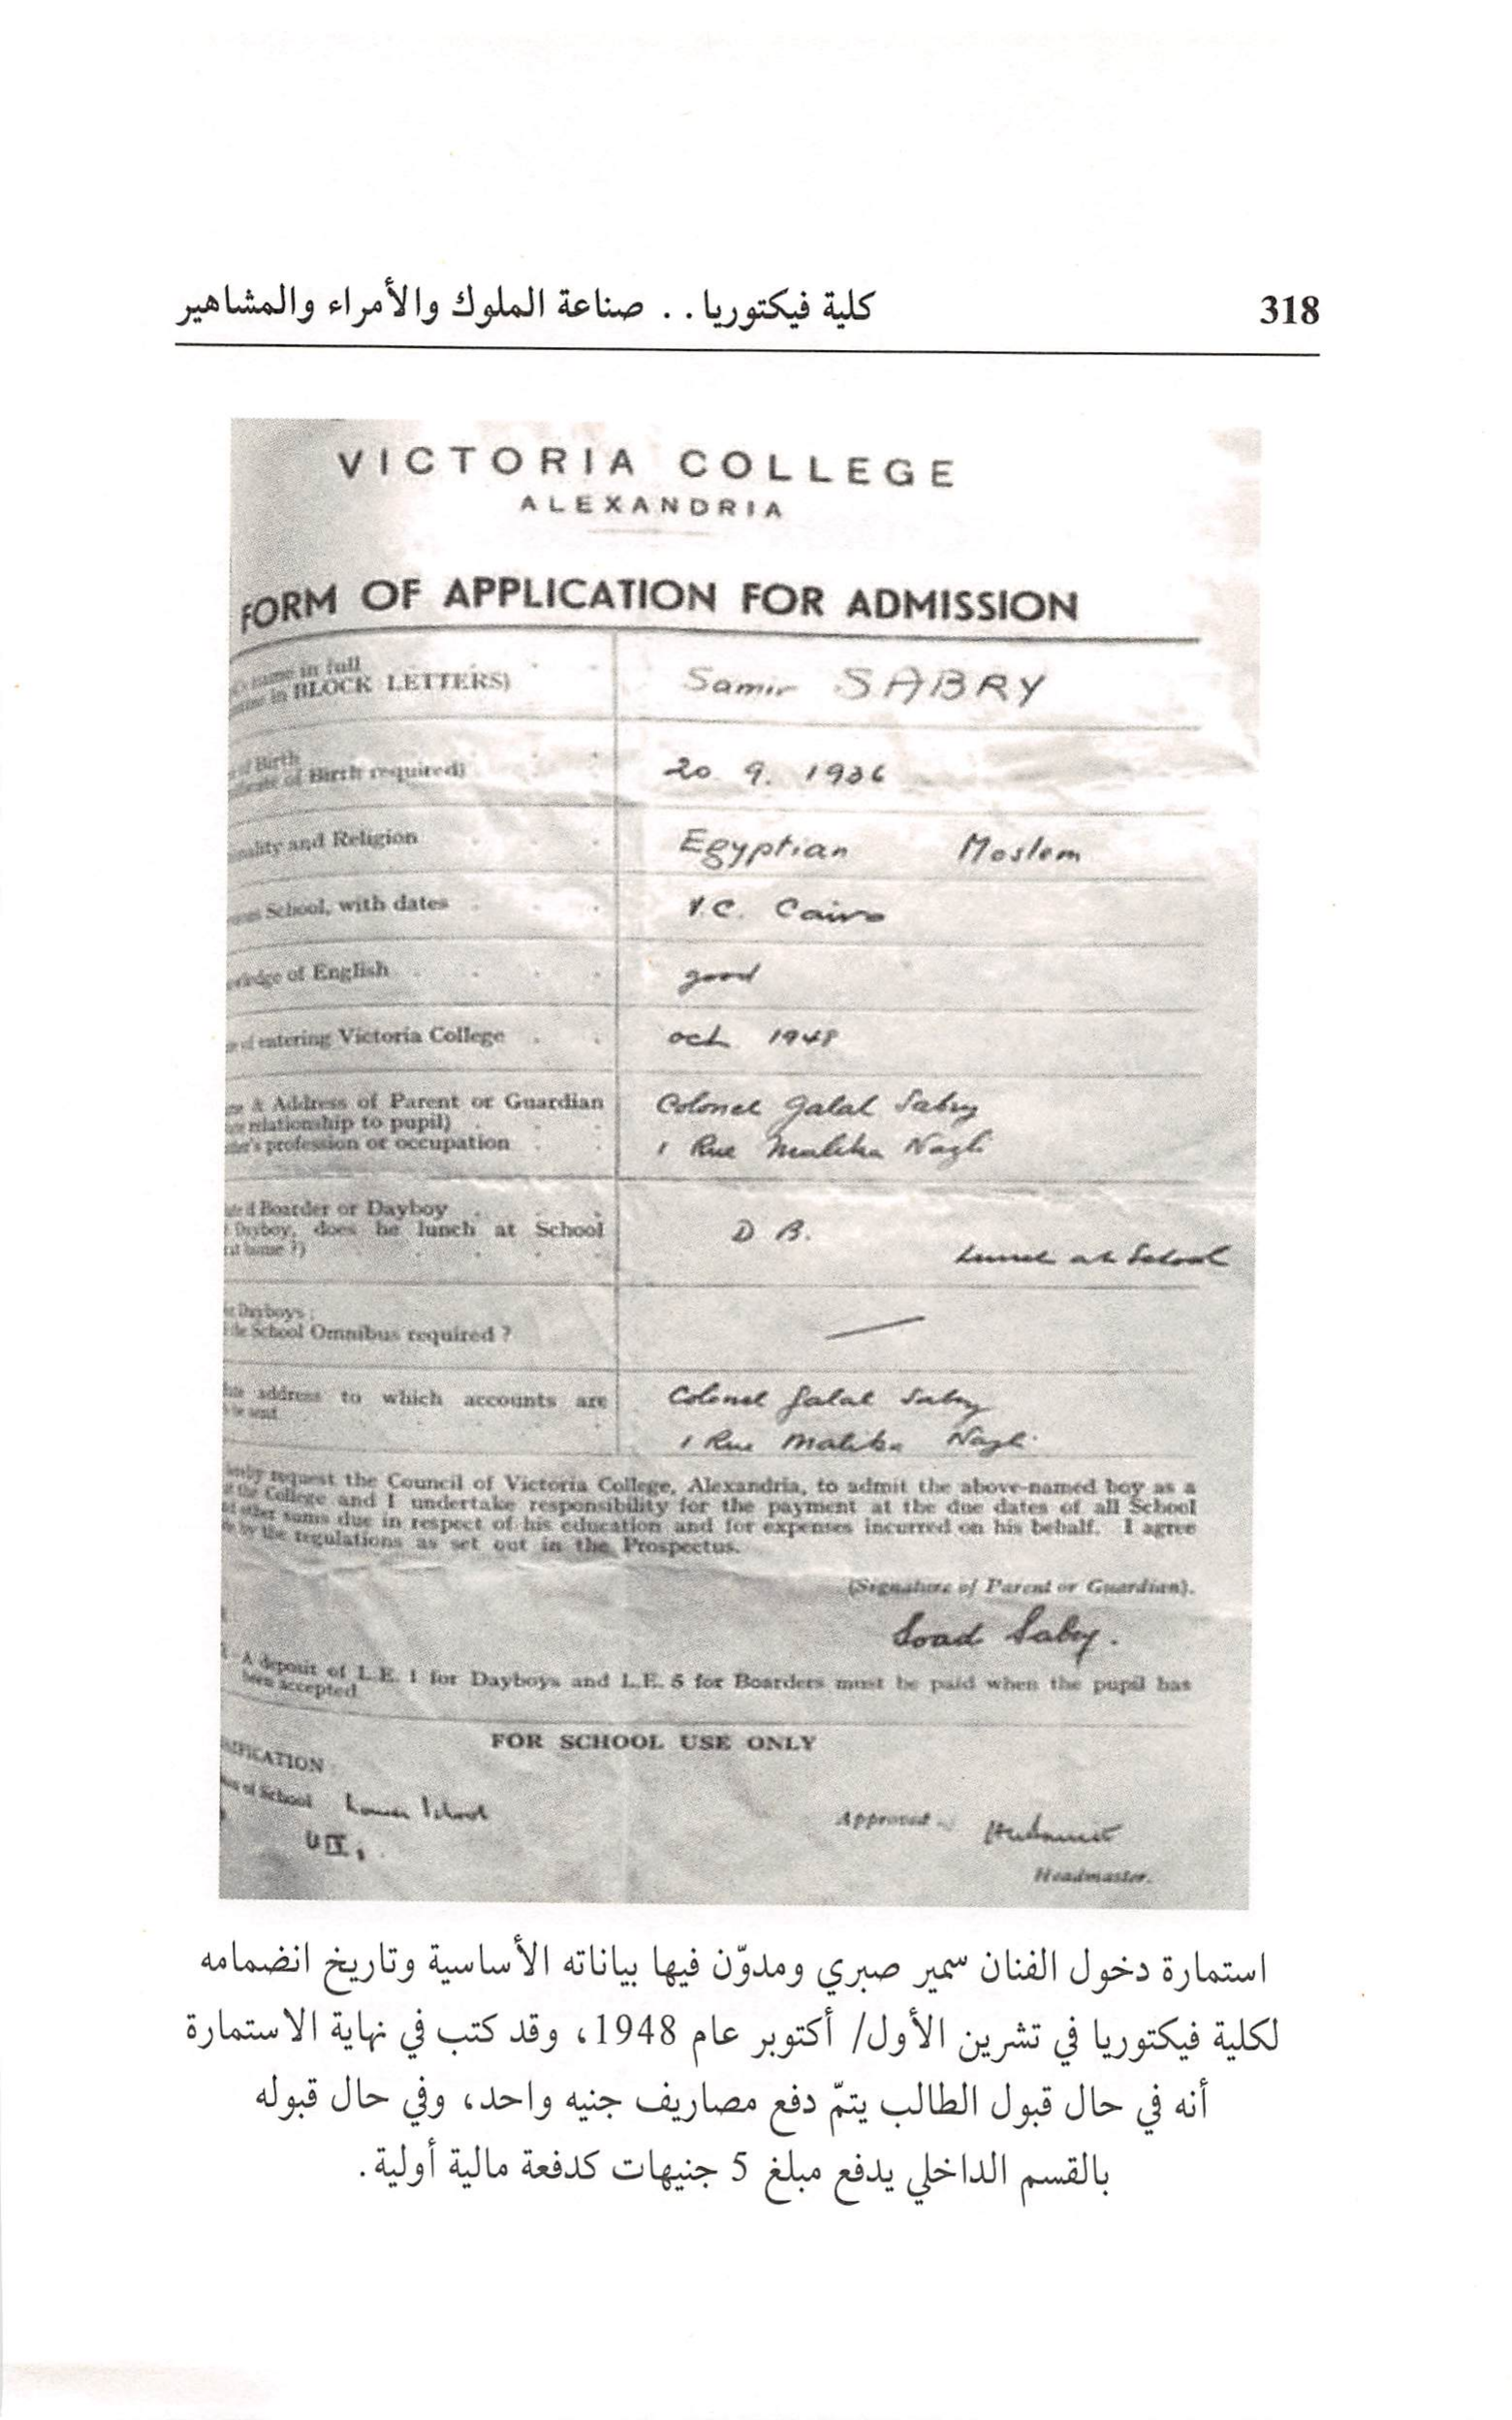 318
كلية فيكتوريا . . صناعة الملوك والأمراء والمشاهير
VICTORIA COLLEGE
ALEXANDRIA
FORM OF APPLICATION FOR ADMISSION
name in full
in BLOCK LETTERS)
Samir SABRY
of Birth
of Birth required)
20 9. 1936
and Religion
Egyptian Moslem
School, with dates
V.C. Cairo
of English
good
entering Victoria College
oct 1948
& Address of Parent or Guardian
relationship to pupil)
profession or occupation
Colonel Galal Sabry
1 Rue Malika Nazli
Boarder or Dayboy
Dayboy, does he lunch at School
D B.
Lunch at School
Dayboys :
School Omnibus required ?
address to which accounts are
Colonel Galal Sabry
1 Rue Malika Nazli
request the Council of Victoria College, Alexandria, to admit the above-named boy as a
the College and I undertake responsibility for the payment at the due dates of all School
other sums due in respect of his education and for expenses incurred on his behalf. I agree
by the regulations as set out in the Prospectus.
(Signature of Parent or Guardian).
Soad Sabry.
A deposit of L.E. 1 for Dayboys and L.E. 5 for Boarders must be paid when the pupil has
been accepted
FOR SCHOOL USE ONLY
of School Lower School
Approved
Headmaster.
استمارة دخول الفنان سمير صبري ومدوّن فيها بياناته الأساسية وتاريخ انضمامه
لكلية فيكتوريا في تشرين الأول/ أكتوبر عام 1948، وقد كتب في نهاية الاستمارة
أنه في حال قبول الطالب يتمّ دفع مصاريف جنيه واحد، وفي حال قبوله
بالقسم الداخلي يدفع مبلغ 5 جنيهات كدفعة مالية أولية.